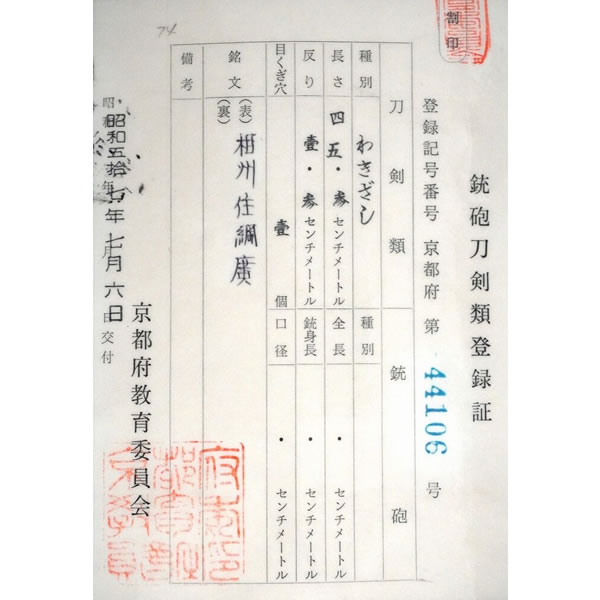 割印
銃砲刀剣類登録証
登録記号番号 京都府 第 44106 号
刀剣類 銃砲
種別 わきざし 種別
長さ 四五・参センチメートル 全長 ・ センチメートル
反り 壹・参センチメートル 銃身長 ・ センチメートル
目くぎ穴 壹 個 口径 ・ センチメートル
銘文 (表) 相州住綱廣
(裏)
備考
昭和五拾七年七月六日交付
京都府教育委員会
74